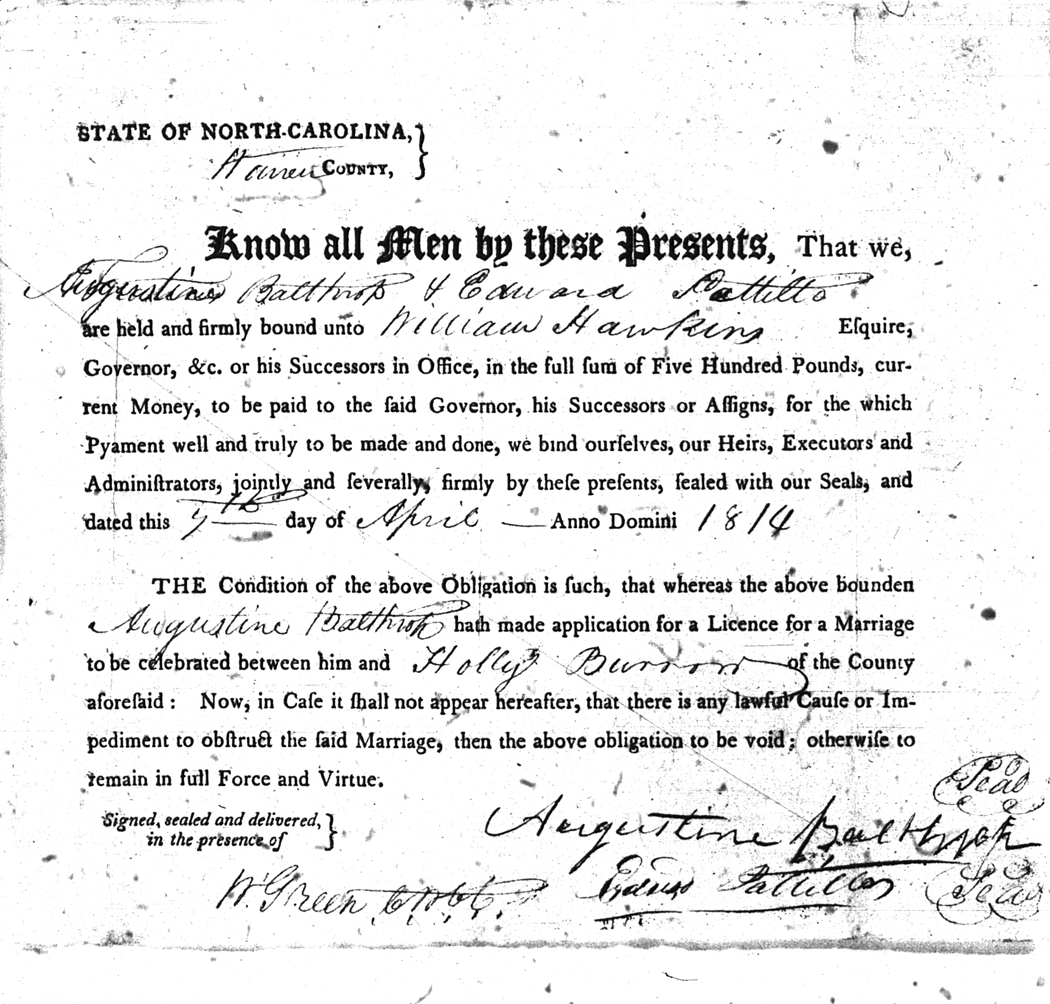 STATE OF NORTH-CAROLINA,
Warren COUNTY,
Know all Men by these Presents, That we,
Augustine Balthrop & Edward Pattillo
are held and firmly bound unto William Hawkins Eſquire,
Governor, &c. or his Successors in Office, in the full ſum of Five Hundred Pounds, cur-
rent Money, to be paid to the ſaid Governor, his Successors or Aſſigns, for the which
Pyament well and truly to be made and done, we bind ourſelves, our Heirs, Executors and
Adminiſtrators, jointly and ſeverally, firmly by theſe preſents, ſealed with our Seals, and
dated this 7th day of April — Anno Domini 1814
THE Condition of the above Obligation is ſuch, that whereas the above bounden
Augustine Balthrop hath made application for a Licence for a Marriage
to be celebrated between him and Holly Burrow of the County
aforeſaid : Now, in Caſe it ſhall not appear hereafter, that there is any lawful Cauſe or Im-
pediment to obſtruct the ſaid Marriage, then the above obligation to be void ; otherwiſe to
remain in full Force and Virtue.
Seal
Signed, sealed and delivered,
in the presence of
Augustine Balthrop
Wm Green Edward Pattillo Seal